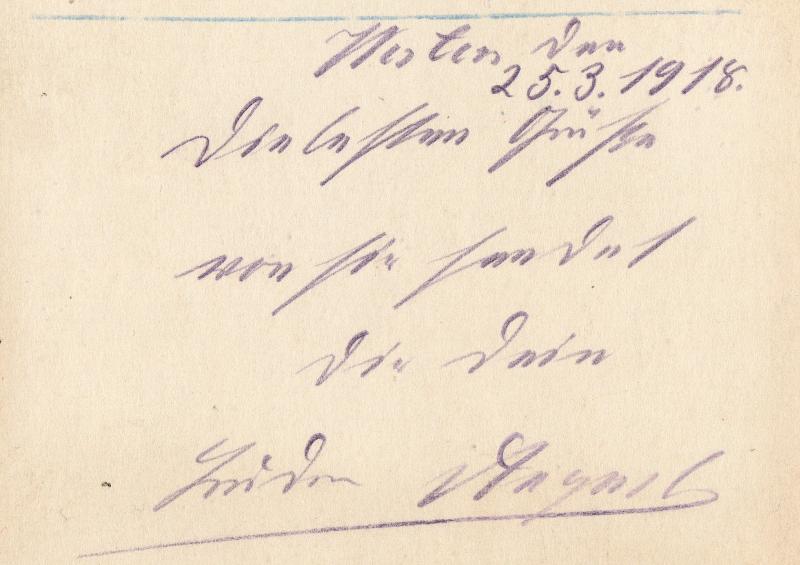 Westen den
25.3.1918.
Die besten Grüße
von hir sendet
Dir dein
Bruder August